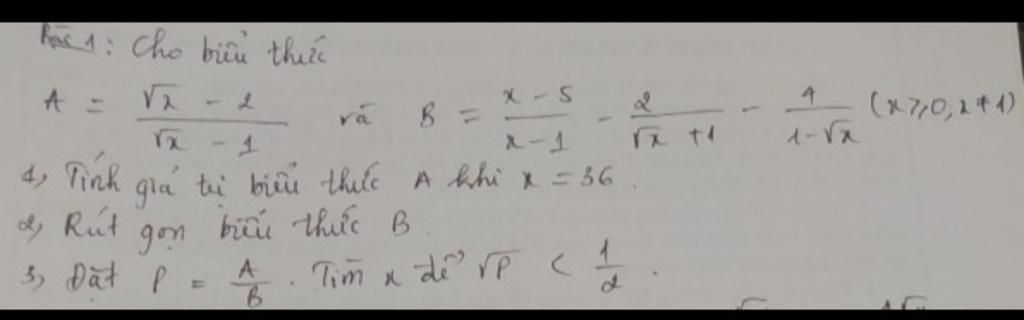 Bài 1: Cho biểu thức
A = (√x - 2)/(√x - 1) và B = (x - 5)/(x - 1) - 2/(√x + 1) - 4/(1 - √x) (x ≥ 0, x ≠ 1)
1, Tính giá tị biểu thức A khi x = 36.
2, Rút gọn biểu thức B.
3, Đặt P = A/B. Tìm x để √P < 1/2.